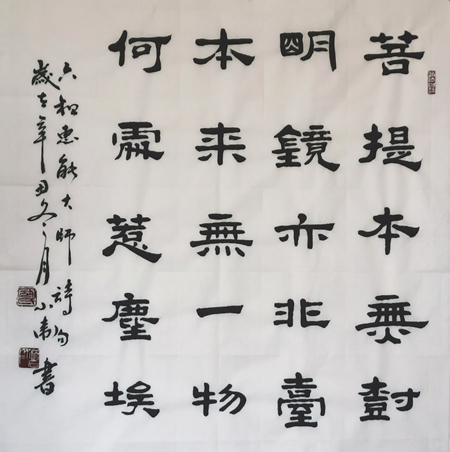 菩提本無尌
朙鏡亦非臺
本来無一物
何處惹塵埃
六祖惠能大師詩句
歲在辛丑冬月書